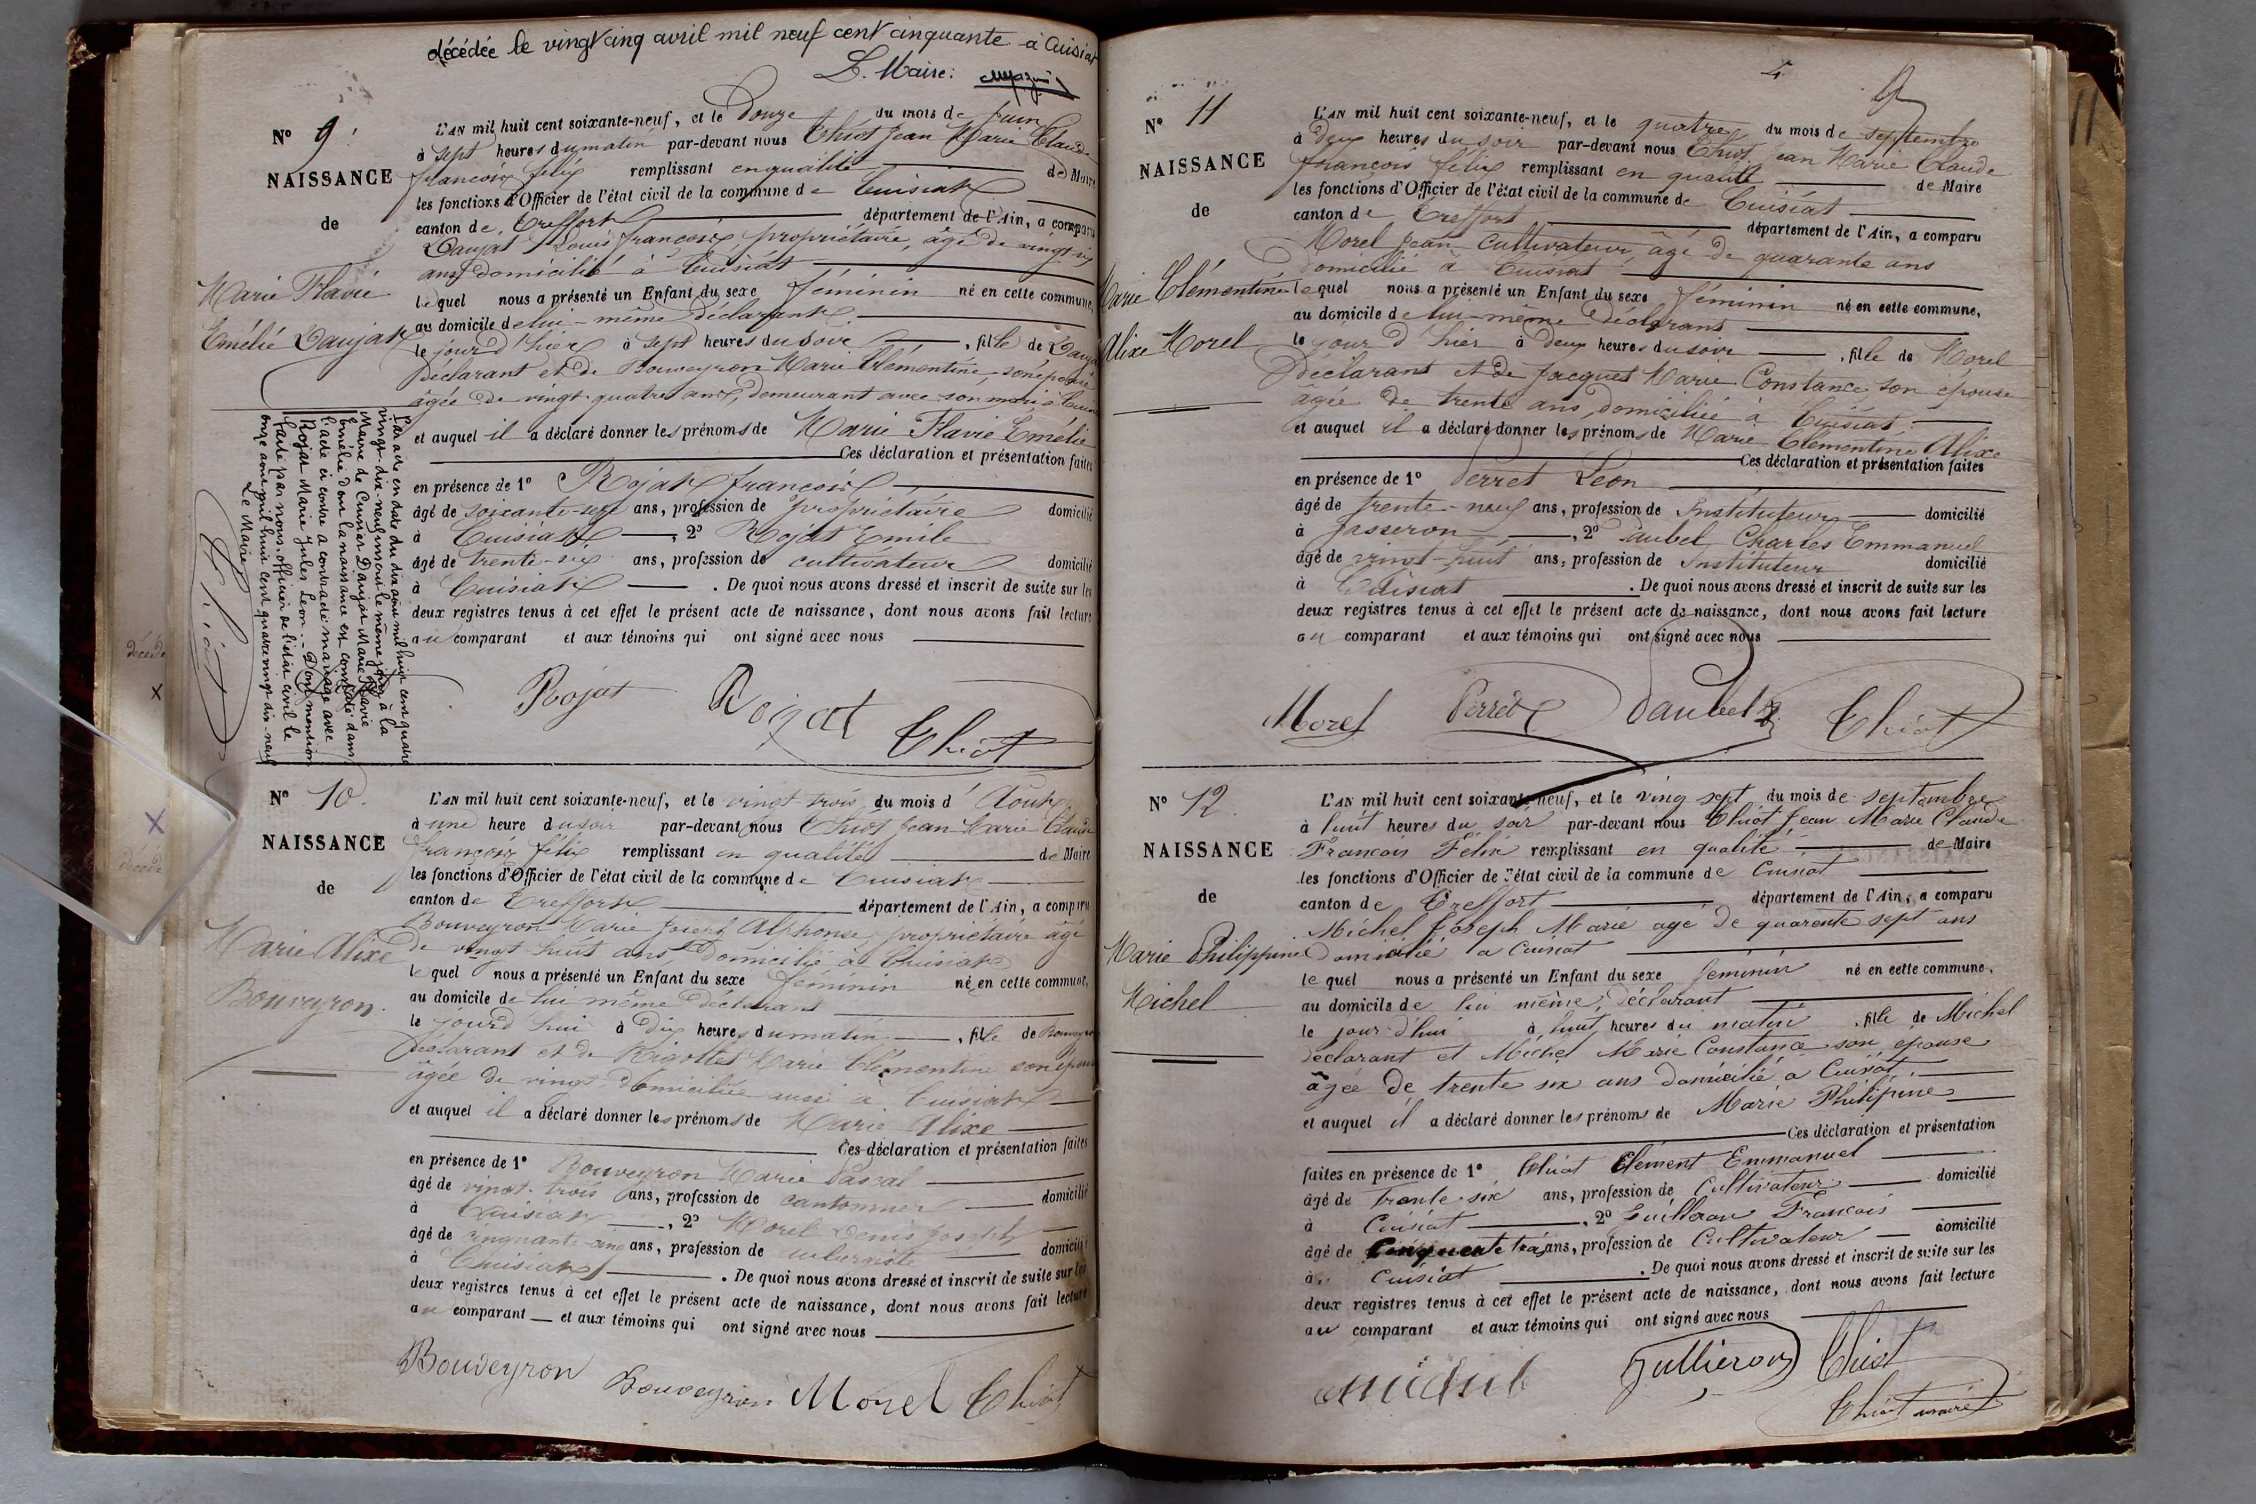 décédée le vingt cinq avril mil neuf cent cinquante à Cuisiat
Le Maire:
N° 9.
NAISSANCE
de
Marie Flavie
Emélie Daujat
L'AN mil huit cent soixante-neuf, et le Douze du mois de Juin
à sept heures du matin par-devant nous Chiot Jean Marie Claude
françois félix remplissant en qualité de Maire
les fonctions d'Officier de l'état civil de la commune de Cuisiat
canton de Treffort département de l'Ain, a comparu
Daujat Louis françois, propriétaire, âgé de vingt six
ans domicilié à Cuisiat
lequel nous a présenté un Enfant du sexe féminin né en cette commune,
au domicile de lui-même déclarant
le jour d'hier à sept heures du soir, fille de Daujat
Déclarant et de Bouveyron Marie Clémentine, son épouse
âgée de vingt quatre ans, demeurant avec son mari à
et auquel il a déclaré donner les prénoms de Marie Flavie Emélie
Ces déclaration et présentation faites
en présence de 1° Rojat françois
âgé de soixante-sept ans, profession de propriétaire domicilié
à Cuisiat, 2° Rojat Emile
âgé de trente-six ans, profession de cultivateur domicilié
à Cuisiat. De quoi nous avons dressé et inscrit de suite sur les
deux registres tenus à cet effet le présent acte de naissance, dont nous avons fait lecture
au comparant et aux témoins qui ont signé avec nous
Par acte en date du dix août mil huit cent quatre
vingt-dix-neuf inscrit le même jour à la
Mairie de Cuisiat Daujat Marie Flavie
Emélie dont la naissance est constatée dans
l'acte ci contre a contracté mariage avec
Rojat Marie Jules Léon.- Dont mention
faite par nous officier de l'état civil le
onze août mil huit cent quatre vingt dix-neuf
Le Maire
Chiot
Rojat Rojat Chiot
N° 10.
NAISSANCE
de
Marie Alixe
Bouveyron.
L'AN mil huit cent soixante-neuf, et le vingt trois du mois d'Août
à une heure du soir par-devant nous Chiot Jean Marie Claude
françois félix remplissant en qualité de Maire
les fonctions d'Officier de l'état civil de la commune de Cuisiat
canton de Treffort département de l'Ain, a comparu
Bouveyron Marie Joseph Alphonse, propriétaire âgé
de vingt huit ans, domicilié à Cuisiat
lequel nous a présenté un Enfant du sexe féminin né en cette commune,
au domicile de lui même Déclarant
le jourd'hui à dix heures du matin, fille de Bouveyron
Déclarant et de Rigottet Marie Clémentine son épouse
âgée de vingt domiciliée aussi à Cuisiat
et auquel il a déclaré donner les prénoms de Marie Alixe
Ces déclaration et présentation faites
en présence de 1° Bouveyron Marie Pascal
âgé de vingt-trois ans, profession de cantonnier domicilié
à Cuisiat, 2° Morel Denis Joseph
âgé de cinquante-cinq ans, profession de domicilié
à Cuisiat. De quoi nous avons dressé et inscrit de suite sur les
deux registres tenus à cet effet le présent acte de naissance, dont nous avons fait lecture
au comparant et aux témoins qui ont signé avec nous
Bouveyron Bouveyron Morel Chiot
N° 11
NAISSANCE
de
Marie Clémentine
Alixe Morel
L'AN mil huit cent soixante-neuf, et le quatre du mois de septembre
à deux heures du soir par-devant nous Chiot Jean Marie Claude
françois félix remplissant en qualité de Maire
les fonctions d'Officier de l'état civil de la commune de Cuisiat
canton de Treffort département de l'Ain, a comparu
Morel Jean cultivateur, âgé de quarante ans
domicilié à Cuisiat
lequel nous a présenté un Enfant du sexe féminin né en cette commune,
au domicile de lui-même déclarant
le jour d'hier à deux heures du soir, fille de Morel
Déclarant et de Jacquet Marie Constance, son épouse
âgée de trente ans, domiciliée à Cuisiat
et auquel il a déclaré donner les prénoms de Marie Clémentine Alixe
Ces déclaration et présentation faites
en présence de 1° Perret Léon
âgé de trente-neuf ans, profession de Instituteur domicilié
à Jasseron, 2° Daubel Charles Emmanuel
âgé de vingt-huit ans, profession de Instituteur domicilié
à Cuisiat. De quoi nous avons dressé et inscrit de suite sur les
deux registres tenus à cet effet le présent acte de naissance, dont nous avons fait lecture
au comparant et aux témoins qui ont signé avec nous
Morel Perret Daubel Chiot
N° 12.
NAISSANCE
de
Marie Philippine
Michel
L'AN mil huit cent soixante-neuf, et le ving sept du mois de septembre
à huit heures du soir par-devant nous Chiot Jean Marie Claude
François Félix remplissant en qualité de Maire
les fonctions d'Officier de l'état civil de la commune de Cuisiat
canton de Treffort département de l'Ain, a comparu
Michel Joseph Marie agé de quarente sept ans
domicilié a Cuisiat
lequel nous a présenté un Enfant du sexe féminin né en cette commune,
au domicile de lui même, déclarant
le jour d'hui à huit heures du matin, fille de Michel
déclarant et Michel Marie Constance son épouse
âgée de trente six ans domicilié a Cuisiat
et auquel il a déclaré donner les prénoms de Marie Philipine
Ces déclaration et présentation
faites en présence de 1° Chiot Clément Emmanuel
âgé de trente-six ans, profession de Cultivateur domicilié
à Cuisiat, 2° Guilleron François
âgé de Cinquente trois ans, profession de Cultivateur domicilié
à Cuisiat. De quoi nous avons dressé et inscrit de suite sur les
deux registres tenus à cet effet le présent acte de naissance, dont nous avons fait lecture
au comparant et aux témoins qui ont signé avec nous
Michel Jullieron Chiot
Chiot maire